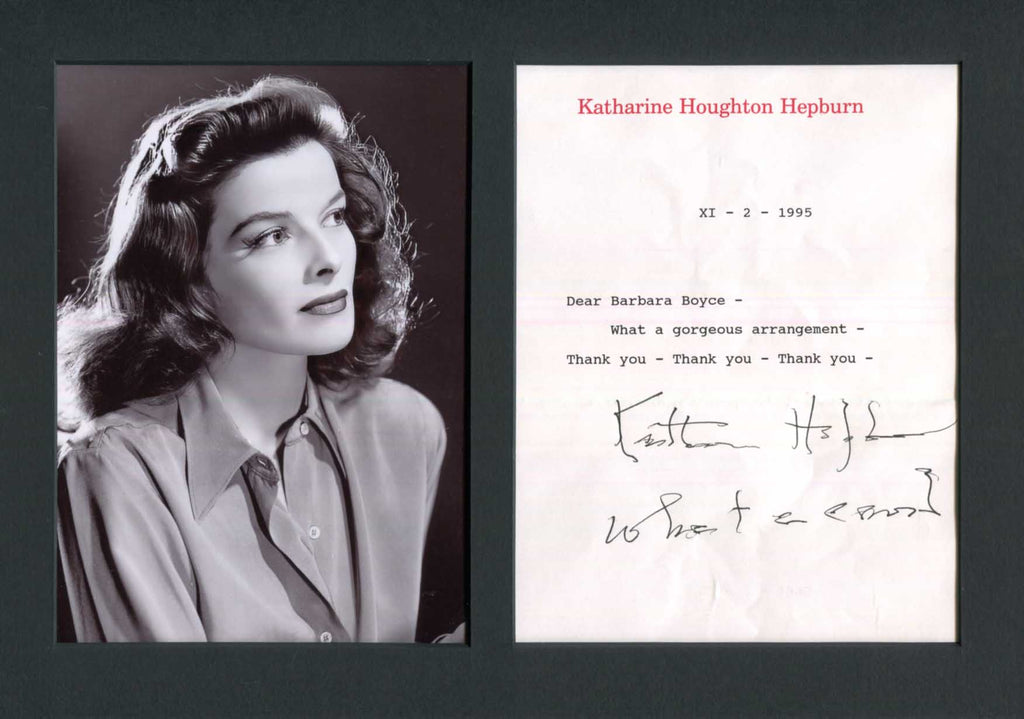 Katharine Houghton Hepburn
XI - 2 - 1995
Dear Barbara Boyce -
What a gorgeous arrangement -
Thank you - Thank you - Thank you -
Katharine Hepburn
What a